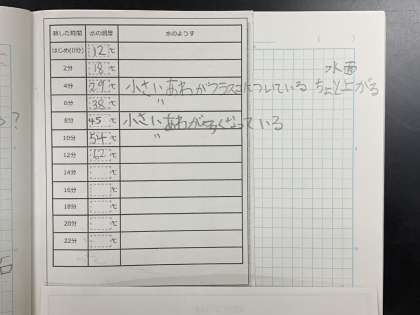 熱した時間 水の温度 水のようす
はじめ(0分) 12 ℃
2分 18 ℃
水面
4分 29 ℃ 小さいあわがフラスコについている ちょと上がる
6分 38 ℃ 〃
8分 45 ℃ 小さいあわが多くなっている
10分 54 ℃ 〃
12分 62 ℃
14分 ℃
16分 ℃
18分 ℃
20分 ℃
22分 ℃
?